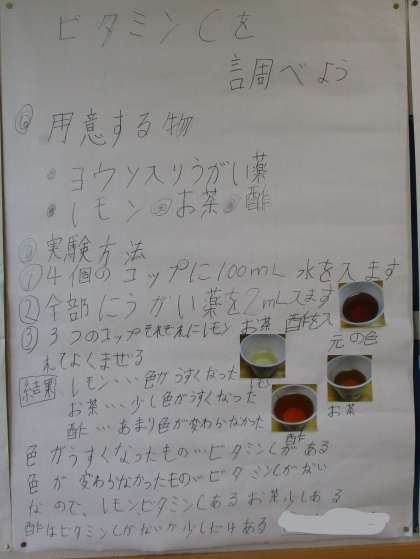 ビタミンCを
調べよう
◎用意する物
・ヨウソ入りうがい薬
・レモン・お茶・酢
◎実験方法
①4個のコップに100mL水を入ます
②全部にうがい薬を2mL入ます
③3つのコップそれぞれにレモンお茶酢を入
れてよくまぜる
元の色
結果 レモン…色がうすくなった
レモン
お茶…少し色がうすくなった
お茶
酢…あまり色が変わらなかった
酢
色がうすくなったもの…ビタミンCがある
色が変わらなかったもの…ビタミンCがない
なので、レモンビタミンCある お茶少しある
酢はビタミンCがないか少しだけある